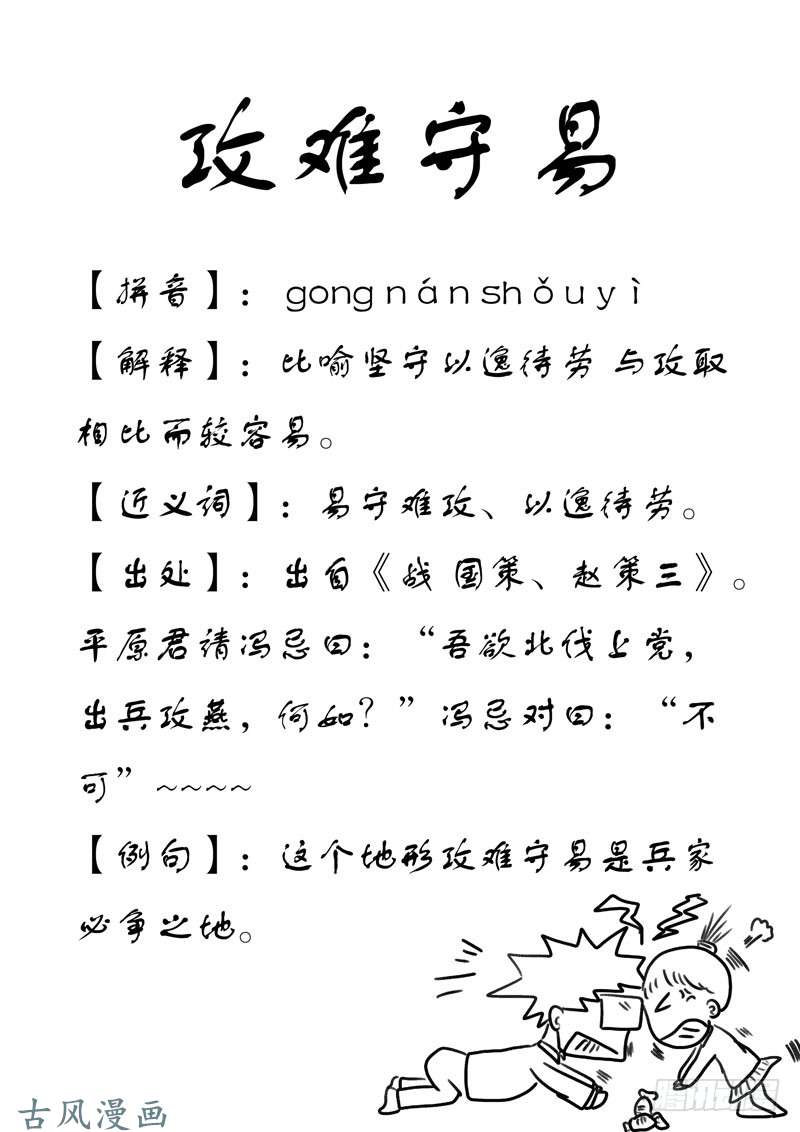 攻难守易
【拼音】： gong nán shǒu yì
【解释】：比喻坚守以逸待劳 与攻取
相比而较容易。
【近义词】：易守难攻、以逸待劳。
【出处】：出自《战 国策、赵策三》。
平原君请冯忌曰：“吾欲北伐上党，
出兵攻燕，何如？”冯忌对曰：“不
可”~~~~
【例句】：这个地形攻难守易是兵家
必争之地。
古风漫画
腾讯动漫